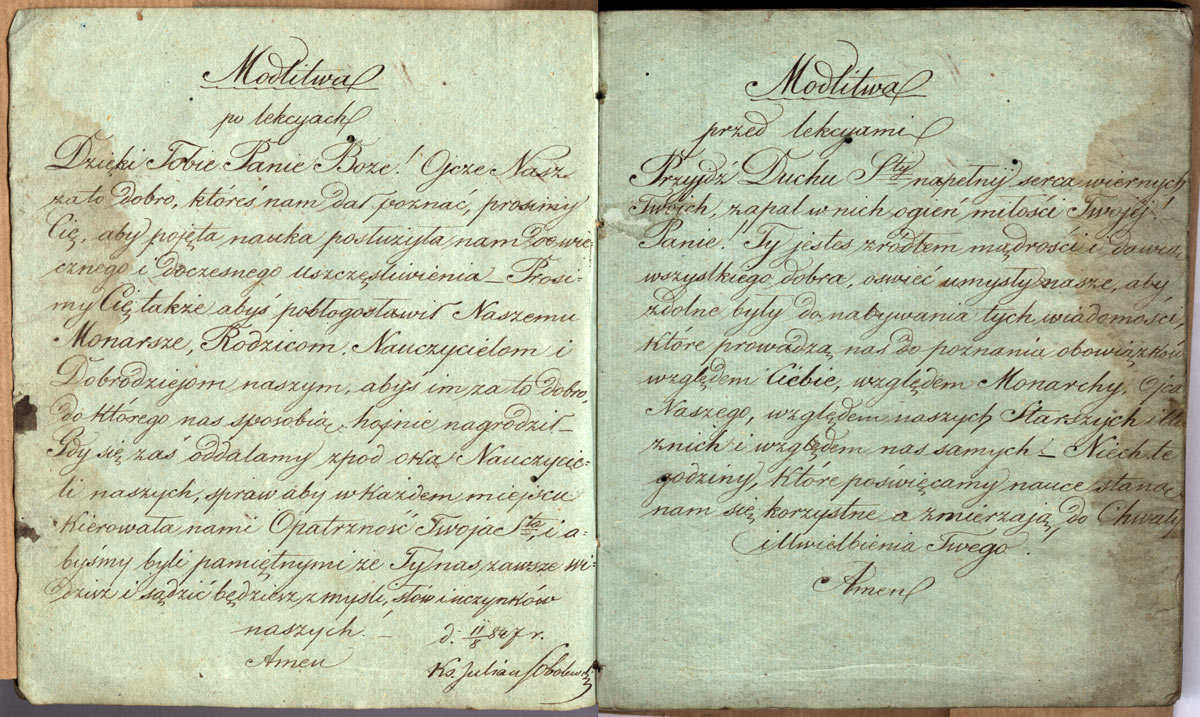 Modlitwa
po lekcyach
Dzięki Tobie Panie Boże! Ojcze Nasz
za to dobro, któreś nam dał poznać, prosimy
Cię, aby pojęta nauka posłużyła nam do wie-
cznego i doczesnego uszczęśliwienia – Prosi-
my Cię także abyś pobłogosławił Naszemu
Monarsze, Rodzicom, Nauczycielom i
Dobrodziejom naszym, abyś im za to dobro,
do którego nas sposobią hojnie nagrodził –
Gdy się zaś oddalamy zpod oka Nauczycie-
li naszych, spraw aby w każdem miejscu
kierowała nami Opatrzność Twoja Sta, i a-
byśmy byli pamiętnymi że Ty nas zawsze wi-
dzisz i sądzić będziesz z myśli, słów i uczynków
naszych. –
d. 11/8 847 r.
Amen
Ks. Julian
Modlitwa
przed lekcyami
Przyjdź Duchu Sty napełnij serca wiernych
Twoich, zapal w nich ogień miłości Twojéj
Panie! Ty jestes zrodłem mądrości i dawcą
wszystkiego dobra, oswieć umysły nasze, aby
zdolne były do nabywania tych wiadomości,
które prowadzą nas do poznania obowiązków
względem Ciebie, względem Monarchy, Ojca
Naszego, względem naszych Starszych i bli
znich i względem nas samych – Niech te
godziny, które poświęcamy nauce staną
nam się korzystne a zmierzają do Chwały
i Uwielbienia Twego.
Amen